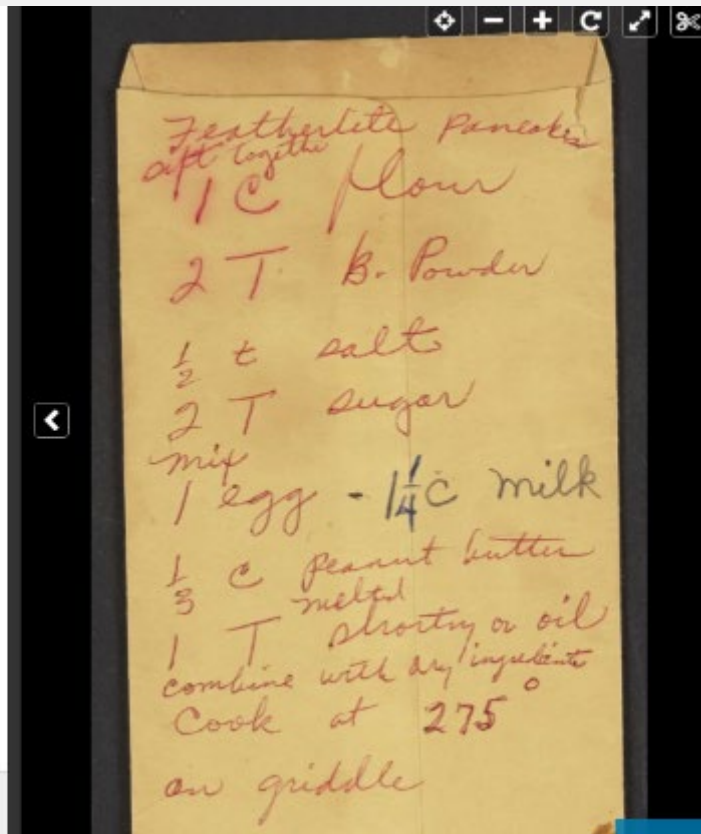 Featherlite Pancakes
Sift together
1 C flour
2 T B. Powder
1/2 t salt
2 T sugar
mix
1 egg - 1 1/4 C milk
1/3 C peanut butter
melted
1 T shortng or oil
combine with dry ingredients
Cook at 275°
on griddle